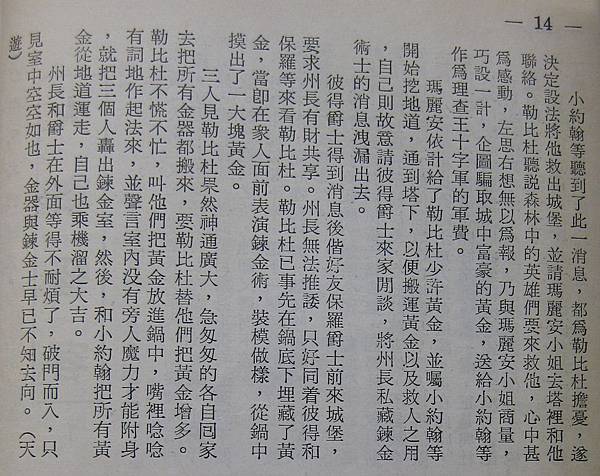 — 14 —
小約翰等聽到了此一消息，都爲勒比杜擔憂，遂
決定設法將他救出城堡，並請瑪麗安小姐去塔裡和他
聯絡。勒比杜聽説森林中的英雄們要來救他，心中甚
爲感動，左思右想無以爲報，乃與瑪麗安小姐商量，
巧設一計，企圖騙取城中富豪的黃金，送給小約翰等
作爲理查王十字軍的軍費。
瑪麗安依計給了勒比杜少許黃金，並囑小約翰等
開始挖地道，通到塔下，以便搬運黃金以及救人之用
，自己則故意請彼得爵士來家閒談，將州長私藏鍊金
術士的消息洩漏出去。
彼得爵士得到消息後偕好友保羅爵士前來城堡，
要求州長有財共享。州長無法推諉，只好同着彼得和
保羅等來看勒比杜。勒比杜已事先在鍋底下埋藏了黃
金，當卽在衆人面前表演鍊金術，裝模做樣，從鍋中
摸出了一大塊黃金。
三人見勒比杜果然神通廣大，急匆匆的各自囘家
去把所有金器都搬來，要勒比杜替他們把黃金增多。
勒比杜不慌不忙，叫他們把黃金放進鍋中，嘴裡唸唸
有詞地作起法來，並聲言室內没有旁人魔力才能附身
，就把三個人轟出鍊金室，然後，和小約翰把所有黃
金從地道運走，自己也乘機溜之大吉。
州長和爵士在外面等得不耐煩了，破門而入，只
見室中空空如也，金器與鍊金士早已不知去向。（天
遊）